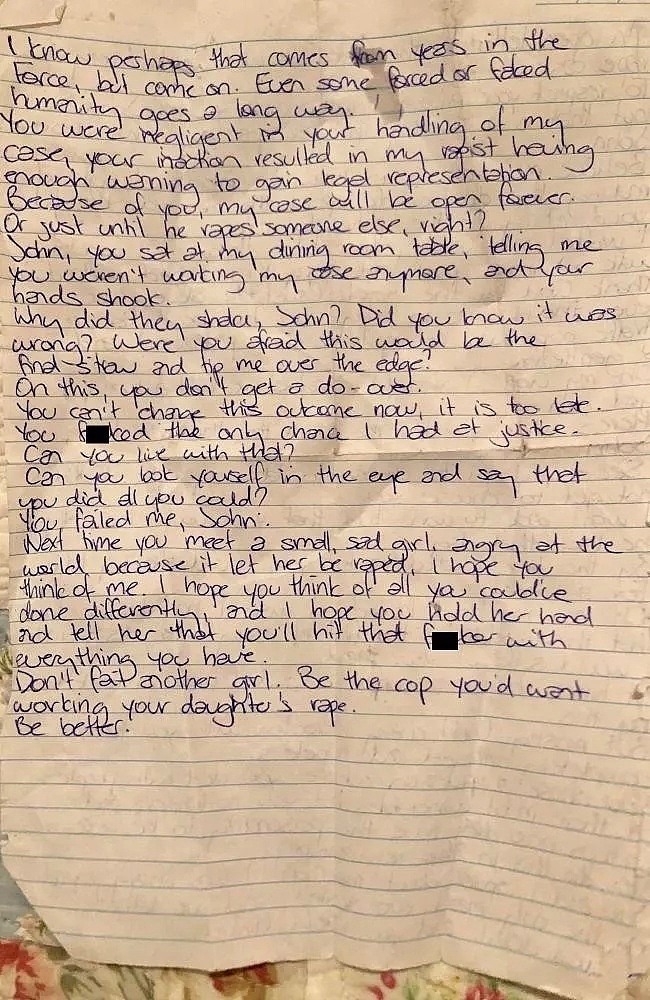 I know perhaps that comes from years in the
Force, but come on. Even some forced or faked
humanity goes a long way.
You were negligent in your handling of my
case, your inaction resulted in my rapist having
enough warning to gain legal representation.
Because of you, my case will be open forever.
Or just until he rapes someone else, right?
John, you sat at my dining room table, telling me
you weren't working my case anymore, and your
hands shook.
Why did they shake, John? Did you know it was
wrong? Were you afraid this would be the
final straw and tip me over the edge?
On this, you don't get a do-over.
You can't change this outcome now, it is too late.
You f cked the only chance I had at justice.
Can you live with that?
Can you look yourself in the eye and say that
you did all you could?
You failed me, John.
Next time you meet a small, sad girl, angry at the
world because it let her be raped, I hope you
think of me. I hope you think of all you could've
done differently, and I hope you hold her hand
and tell her that you'll hit that f ker with
everything you have.
Don't fail another girl. Be the cop you'd want
working your daughter's rape.
Be better.